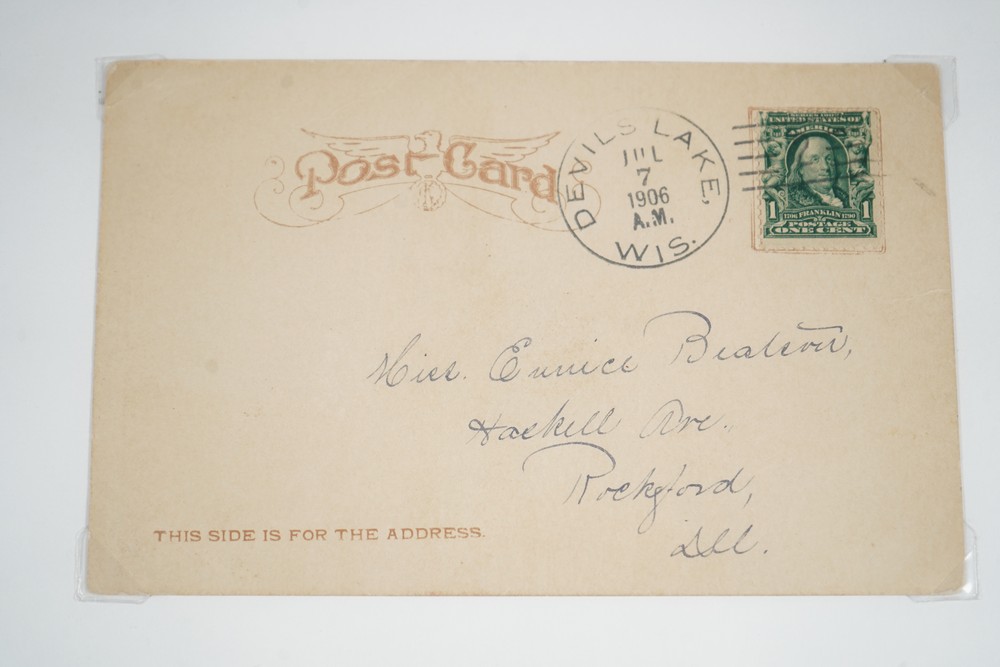 Post Card
DEVILS LAKE,
JUL
7
1906
A.M.
WIS.
SERIES 1902
UNITED STATES OF
AMERICA
1 1706 FRANKLIN 1790 1
POSTAGE
ONE CENT
Miss. Eunice
Haskell Ave.
Rockford,
Ill.
THIS SIDE IS FOR THE ADDRESS.